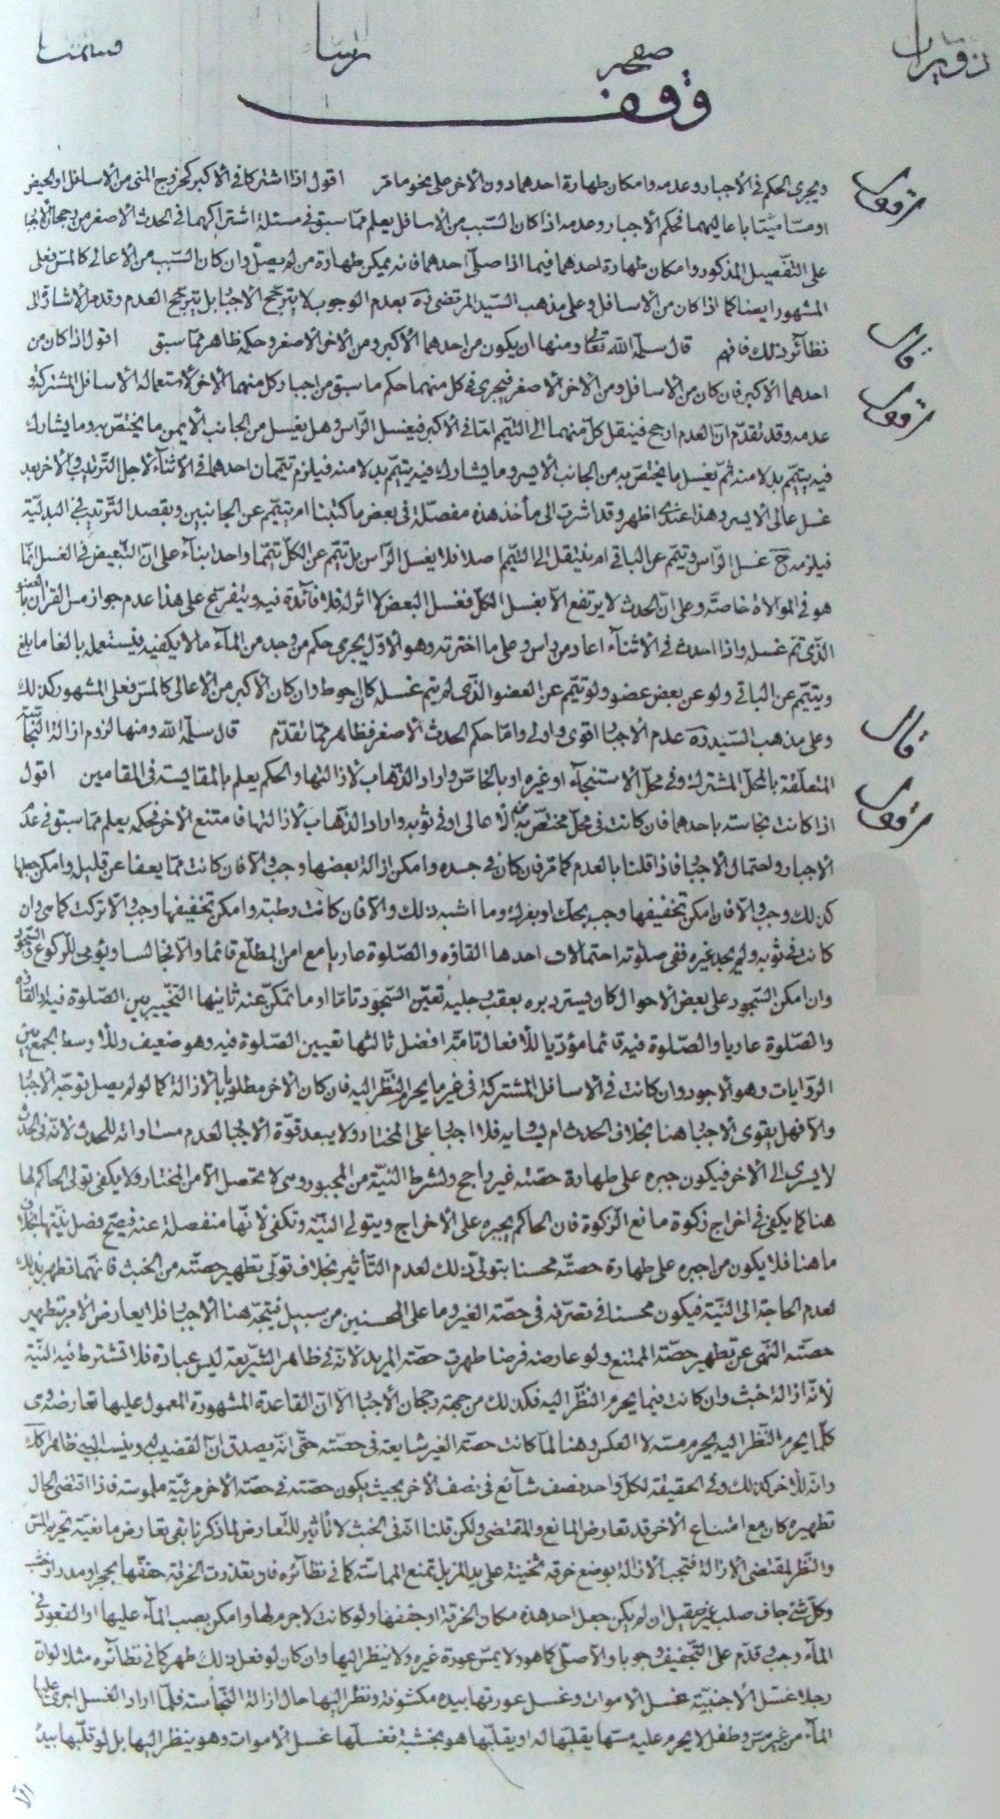 صفحه
وقف
ويجرى الحكم في الأجبار وعدمه وامكان طهارة احدهما دون الآخر على نحو ما مرّ اقول اذا اشتركا في الأكبر كخروج المنى من الأسافل او الحيض
او مسّا ميّتا باعاليهما فحكم الأجبار وعدمه اذا كان السّبب من الأسافل يعلم ممّا سبق في مسئلة اشتراكهما في الحدث الأصغر من رجحان الأجبار
على التّفصيل المذكور وامكان طهارة احدهما فيما اذا صلّى احدهما فانه يمكن طهارة من لم يصلّ وان كان السّبب من الأعالى كالمسّ فعلى
المشهور ايضا كما اذا كان من الأسافل وعلى مذهب السّيد المرتضى ره بعدم الوجوب لا يترجّح الأجبار بل يترجّح العدم وقدم الأشارة الى
نظآئر ذلك فافهم قال سلّمه الله تعالى ومنها ان يكون من احدهما الأكبر ومن الآخر الأصغر وحكمه ظاهر ممّا سبق اقول اذا كان من
احدهما الأكبر فان كان من الأسافل ومن الآخر الأصغر فيجرى في كل منهما حكم ما سبق من اجبار كل منهما الآخر لأستعماله الأسافل المشتركة و
عدمه وقد تقدّم انّ العدم ارجح فينقل كلّ منهما الى التيمّم امّا في الأكبر فيغسل الرّاس وهل يغسل من الجانب الأيمن ما يختصّ به وما يشارك
فيه يتيمّم بدلا منه ثمّ يغسل ما يختصّ به من الجانب الأيسر وما يشارك فيه يتيمّم بدلا منه فيلزم تيمّمان احدهما في الأثنآء لأجل التّرتيب والآخر بعد
غسل عالى الأيسر وهذا عندى اظهر وقد اشرت الى مأخذ هذه مفصّلة في بعض ما كتبنا ام يتيمّم عن الجانبين ويقصد التّرتيب في البدليّة
فيلزمه ح غسل الرّاس وتيمّم عن الباقى ام ينتقل الى التيمّم اصلا فلا يغسل الرّاس بل تيمّم عن الكلّ تيمّما واحدا بنآء على انّ التّبعيض في الغسل انّما
هو في الموالاة خاصّة وعلى انّ الحدث لا يرتفع الّا بغسل الكلّ فغسل البعض لا اثر له فلا فآئدة فيه ويتفرّع على هذا عدم جواز مسّ القرآن بالعضو
الّذى تمّ غسله واذا احدث في الأثنآء اعاد من راس وعلى ما اخترته وهو الأول يجرى حكم من وجد من المآء ما لا يكفيه فيستعمله بالغا ما بلغ
ويتيمّم عن الباقى ولو عن بعض عضو ولو تيمّم عن العضو الّذى لم يتم غسله كان احوط وان كان الأكبر من الأعالى كالمسّ فعلى المشهور كذلك
وعلى مذهب السّيد ره عدم الأجبار اقوى واولى وامّا حكم الحدث الأصغر فظاهر ممّا تقدّم قال سلّمه الله ومنها لزوم ازالة النّجاسة
المتعلّقة بالمحلّ المشترك وفي محلّ الأستنجآء او غيره او بالخاصّ واراد الذّهاب لأزالتها والحكم يعلم بالمقايسة في المقامين اقول
اذا كانت نجاسته باحدهما فان كانت في محلّ مختصّ به من الأعالى او في ثوبه واراد الذّهاب لأزالتها فامتنع الآخر فحكمه يعلم ممّا سبق في عدم
الأجبار ولحتمال الأجبار فاذا قلنا بالعدم كما مرّ فان كان في جسده وامكن ازالة بعضها وجب والّا فان كانت ممّا يعفا عن قليله وامكن جعلها
كذلك وجب والّا فان امكن تخفيفها وجب بحك او بفرك وما اشبه ذلك والّا فان كانت رطبة وامكن تخفيفها وجب والّا تركت كما هي وان
كانت في ثوبه ولم يجد غيره ففى صلوته احتمالات احدها القاؤه والصّلوة عاريا مع امن المطّلع قائما والّا فجالسا ويومى للرّكوع والسّجود
وان امكن السّجود على بعض الأحوال كان يستر دبره بعقب رجليه تعيّن السّجود تامّا او ما تمكّن عنه ثانيها التّخيير بين الصّلوة فيه او القاؤه
والصّلوة عاريا والصّلوة فيه قائما مؤدّيا للأفعال تامّة افضل ثالثها تعيين الصّلوة فيه وهو ضعيف وللأوسط الجمع بين
الرّوايات وهو الأجود وان كانت في الأسافل المشتركة في غير ما يحرم النّظر اليه فان كان الآخر مطلوبا بالأزالة كما لو لم يصل توجّه الأجبار
والّا فهل يقوى الأجبار هنا بخلاف الحدث ام يساويه فلا اجبار على المختار ولا يبعد قوّة الأجبار لعدم مساواته للحدث لأنّه في الحدث
لا يسرى الى الآخر فيكون جبره على طهارة حصّته غير راجح ولشرط النّيّة من المجبور وهى لا تحصل الّا من المختار ولا يكفى تولى الحاكم لها
هنا كما يكفى في اخراج زكوة مانع الزّكوة فان الحاكم يجبره على الأخراج ويتولى النّيّة وتكفى لأنّها منفصلة عنه فيصحّ فصل نيّتها بخلاف
ما هنا فلا يكون من اجبره على طهارة حصّته محسنا بتولى ذلك لعدم التّأثير بخلاف تولّى تطهير حصّته من الخبث فانّها تطهر بذلك
لعدم الحاجة الى النّيّة فيكون محسنا في تصرّفه في حصّة الغير وما على المحسنين من سبيل فيتّجه هنا الأجبار فلا يعارض الأمر بتطهير
حصّته النّهى عن تطهير حصّة الممتنع ولو عارضه فرضا طهرت حصّة المريد لأنّه في ظاهر الشّريعة ليس عبادة فلا تشترط فيه النّيّة
لأنّه ازالة خبث وان كانت فيما يحرم النّظر اليه فكذلك من جهة رجحان الأجبار الّا انّ القاعدة المشهورة المعمول عليها تعارضه وهى
كلّما يحرم النّظر اليه يحرم مسّه لا العكس وهنا لمّا كانت حصّة الغير شايعة في حصّته حتّى انّه يصدق انّ القضيب له وينسب اليه ظاهرا كلّه
وانّه للآخر كذلك وفي الحقيقة لكلّ واحد نصف شآئع في نصف الآخر بحيث يكون حصّته في حصّة الآخر مرئيّة ملموسة فاذا اقتضى الحال
تطهيره كان مع امتناع الآخر قد تعارض المانع والمقتضى ولكن قلنا انّه في الخبث لا تأثير للتّعارض لما ذكرنا بقى تعارض مانعيّة تحريم المسّ
والنّظر لمقتضى الأزالة فتجب الأزالة بوضع خرقة ثخينة على يد المزيل تمنع المماسّة كما في نظآئره فان تعذّرت الخرقة خفّفها بحجر او مدر او خشب
وكلّ شئ جاف صلب غير صقيل ان لم يكن جعل احد هذه مكان الخرقة او جفّفها ولو كانت لا جرم لها وامكن بصب المآء عليها او القعود في
المآء وجب وقدّم على التّجفيف وجوبا والأصلى كما هو ولا يمسّ عورة غيره ولا ينظر اليها وان كان لو فعل ذلك طهر كما في نظآئره مثلا لو انّ
رجلا غسّل الأجنبيّة غسل الأموات وغسل عورتها بيده مكشوفة ونظر اليها حال ازالة النّجاسة فلمّا اراد الغسل اجرى عليها
المآء من غير مسّ وطفل لا يحرم عليه مسّها يقلّبها له او يقلّبها هو بخشبة فغسلها غسل الأموات وهو ينظر اليها بل لو قلّبها بيده
اقول
قال
اقول
قال
اقول